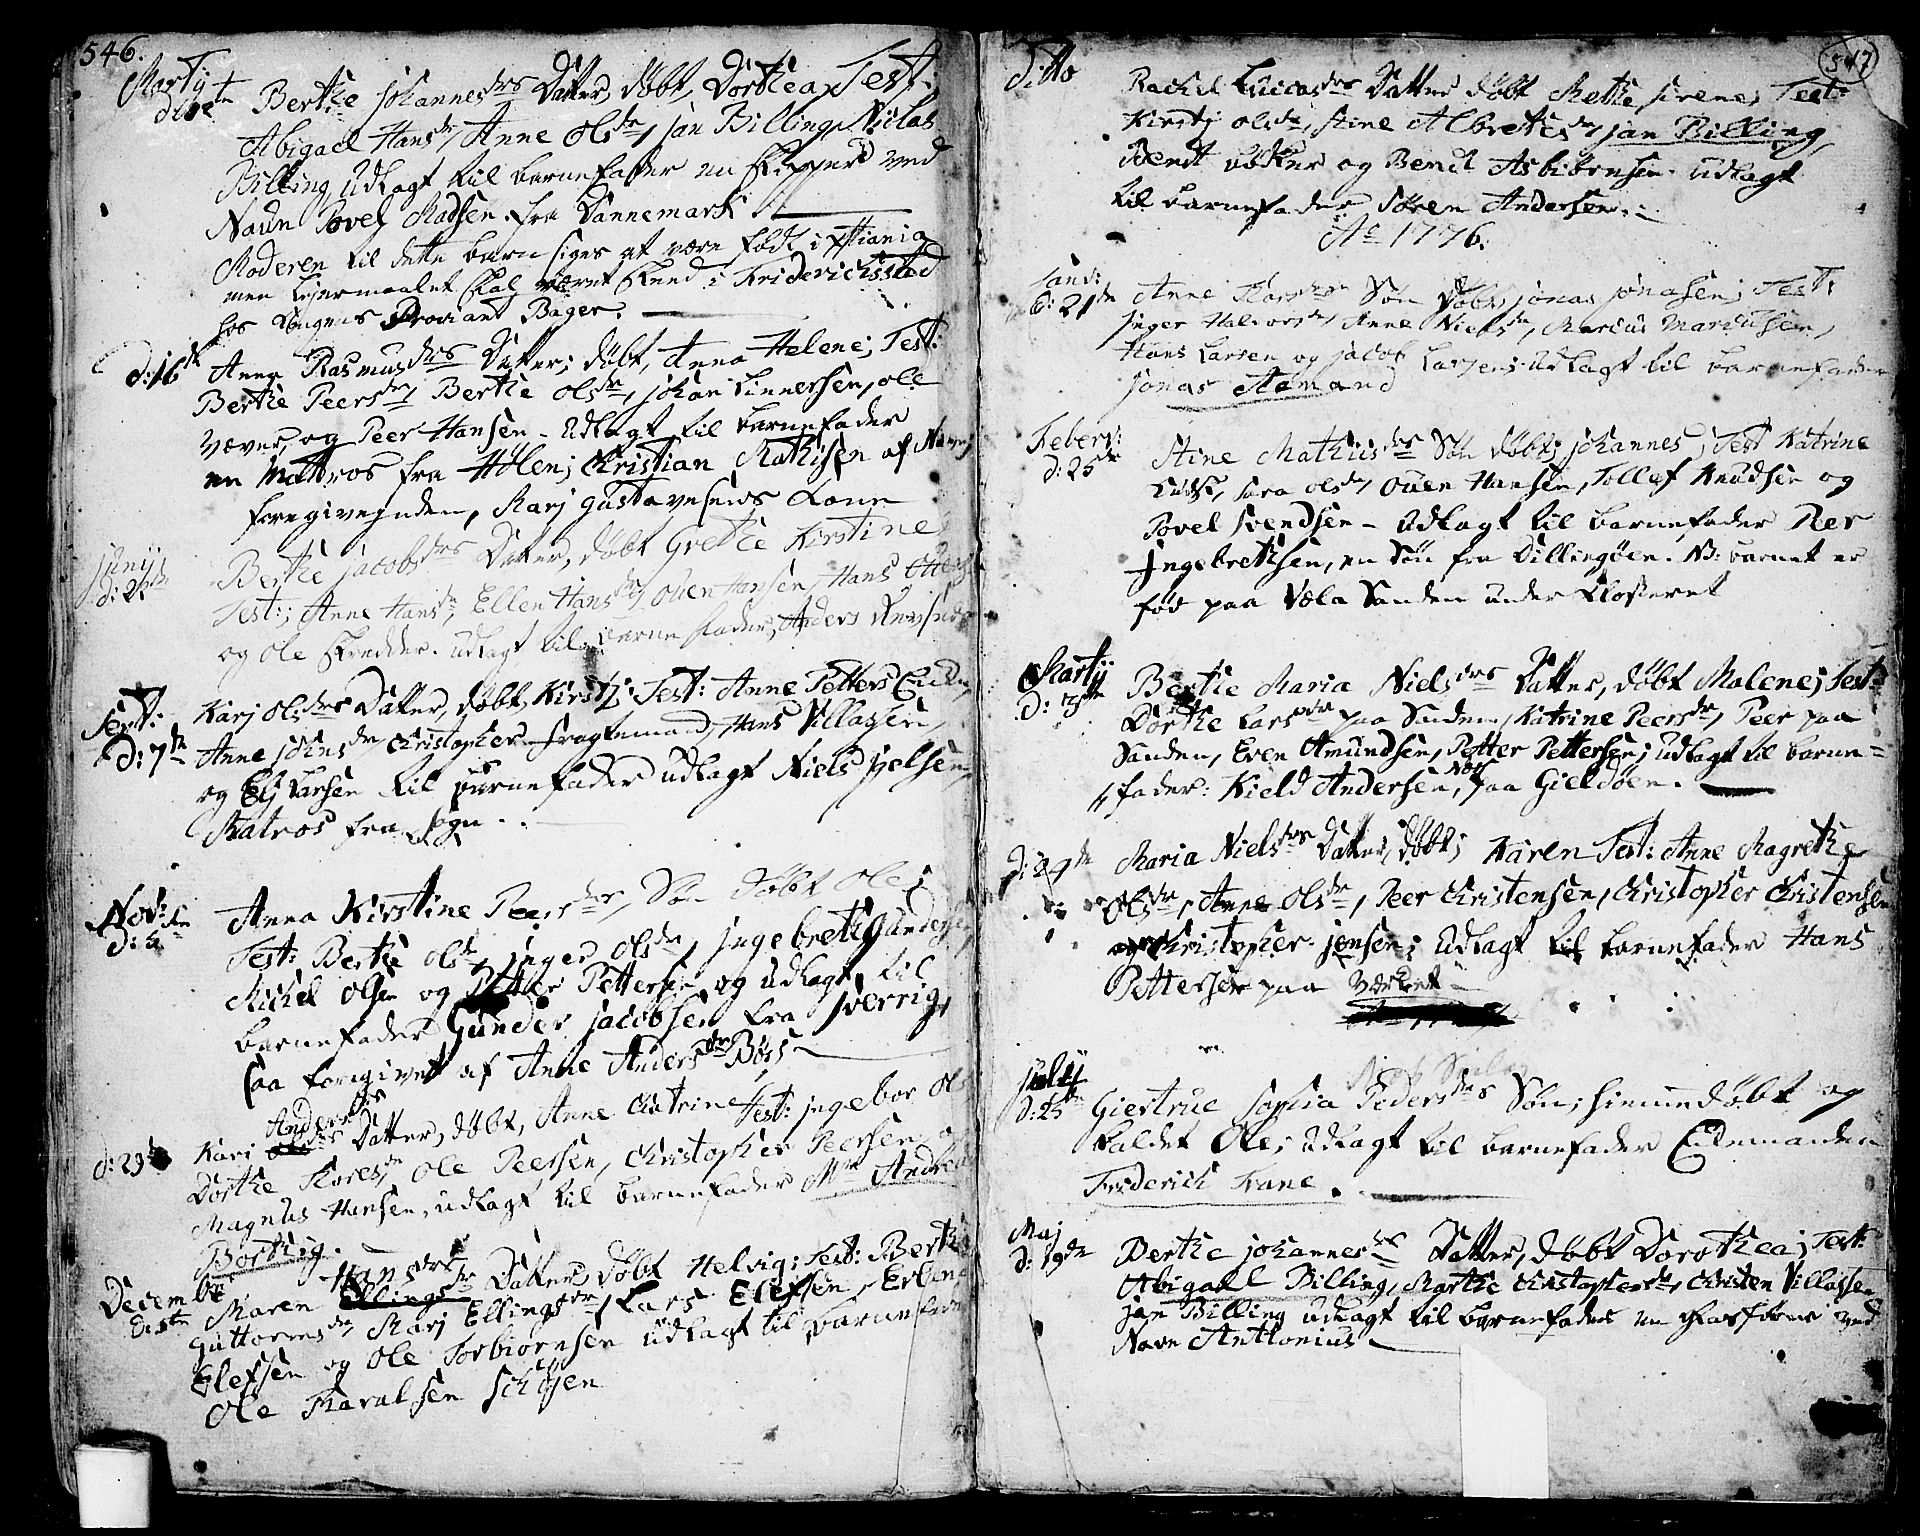 546.
Martij
Berthe Johannesdrs Datter, døbt, Dorthea, Test.
Abigael Hansdr, Anne Olsdr, Jan Billing, Nilas
Billing, Udlagt til barnefader en Skipper ved
Navn Povel Madsen. fra Dannemark
Moderen til dette barn siges at være født i Xtiania
men Leiermaalet skal været skeed i Friderichsstad
hos Kongens Proviant Bager.
d: 16de Anna Rasmusdrs Datter; døbt, Anna Helene; Test:
Berthe Peersdr, Berthe Olsdr, Johan Finnersen, Ole
Væver, og Peer Hansen - Udlagt til barnefader
en Mattros fra Hølen; Christjan Mathisen af Navn,
foregivesinden, Marj Gustavesens Kone
Junij
Berthe Jacobsdrs Datter, døbt Grethe Kirstine
Test:, Anne Hansdr, Ellen Hansdr, Ouen Hansen, Hans
og Ole Skredder. udlagt til barnefader, Anders
Sept:
d: 7de
Karj Olsdrs Datter, døbt, Kirstj; Test: Anne Petters
Anne Johnsdr Christopher Fragtemand, Hans Villassen,
og Elj Larsen til barnefader udlagt Niels Jielsen,
Matros fra Sogn.
Nov:
Anna Kirstine Peersdrs, Søn døbt Ole;
Test: Berthe Olsdr, Inger Olsdr, Ingebreth Gundersen,
Michel Olsen og Petter Pettersen og udlagt til
barnefader Gunder Jacobsen fra Sverrig,
saa foregivet af Anne Andersdr Bøss
Andersdrs
d: 29de Kari Datter, døbt, Anne Catrine Test: Ingebor Ols
Dorthe Toresdr, Ole Peersen, Christopher Peersen
Magnus Hansen, udlagt til barnefader Mr Andreas
Borthig.
Decembr
d: 5te
Hansdrs
Maren Ellingsdr Datter, døbt Helvig; Test: Berthe
Guttormsdr, Marj Ellingsdr, Lars Elefsen, Erling
Elefsen og Ole Torbiørnsen Udlagt til barnefader
Ole Haralsen Schiøen
547
Ditto
Rachel Lucasdrs Datter døbt Methe Sirene; Test:
Kirstj Olsdr, Stine Albretsdr, Jan Billing,
Bendt og Bendt Asbiörnsen. udlagt
til barnefader Søren Andersen.
Ao 1776.
Janr:
d: 21de
Anne Søn døbt, Jonas Jonasen; Test:
Inger Halvorsdr, Anne Nielsdr, Marcus Marcussen,
Hans Larsen og Jacob Larsen; udlagt til barnefader
Jonas Aamand
Febr:
d: 25de
Stine Mathiisdrs Søn døbt; Johannes; Test Katrine
Sara Olsdr, Ouen Hansen, Tollef Knudsen og
Povel Svendsen - Udlagt til barnefader Per
Ingebrethsen, en Søn fra Dillingøen. NB: barnet er
fød paa Væla Sanden under Closteret
Martij
Berthe Maria Nielsdrs Datter, døbt Malene; Test:
Dorthe Larsdr paa Sanden, Katrine Peersdr, Peer paa
Sanden, Even Amundsen, Petter Pettersen; udlagt til barne=
fader: Kield Andersen, paa Gieldøen.
d: 24de Maria Nielsdrs Datter, døbt; Karen Test: Anne Magrethe
Olsdr, Anne Olsdr, Peer Christensen, Christopher Christensen
og Christopher Jensen; Udlagt til barnefader Hans
Pettersen paa Værket
July
d: 25de
Giertrue Sophia Pedersdrs Søn; hiemmedøbt og
kaldet Ole; udlagt til barnefader Enkemanden
Friderich Frane.
Maj
d: 19de
Berthe Johannesdrs Datter, døbt Dorothea; Test:
Abigaell Billing, Marthe Christophersdr, Christen Villassen
Jan Billing udlagt til barnefader en ved
Navn Anthonius